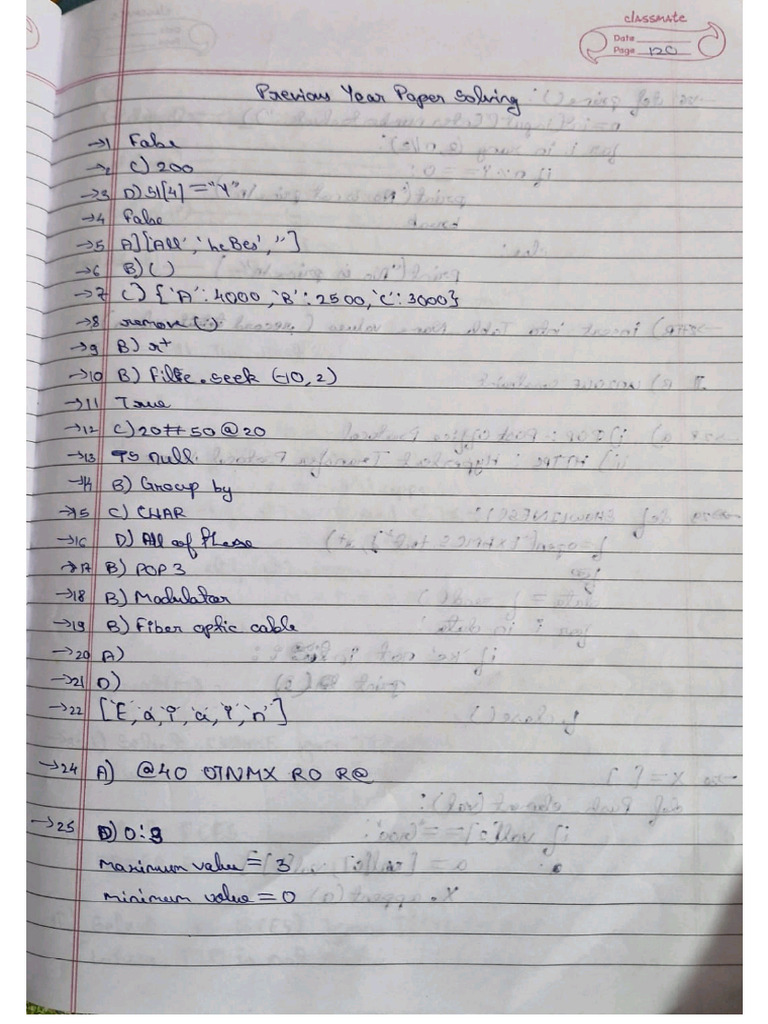 classmate
Date
Page 120
Previous Year Paper Solving
→1 False
→2 C) 200
→3 D) S1[4] = "Y"
→4 False
→5 A) ['All', 'heBes', '']
→6 B) ( )
→7 C) {'A': 4000, 'B': 2500, 'C': 3000}
→8 remove( )
→9 B) r+
→10 B) File.seek (-10, 2)
→11 True
→12 C) 20# 50 @ 20
→13 Is null
→14 B) Group by
→15 C) CHAR
→16 D) All of these
→17 B) POP 3
→18 B) Modulator
→19 B) Fiber optic cable
→20 A)
→21 D)
→22 ['E', 'a', 'i', 'a', 'i', 'n']
→24 A) @40 OTNMX RO R@
→25 D) 0:3
maximum value = 3
minimum value = 0